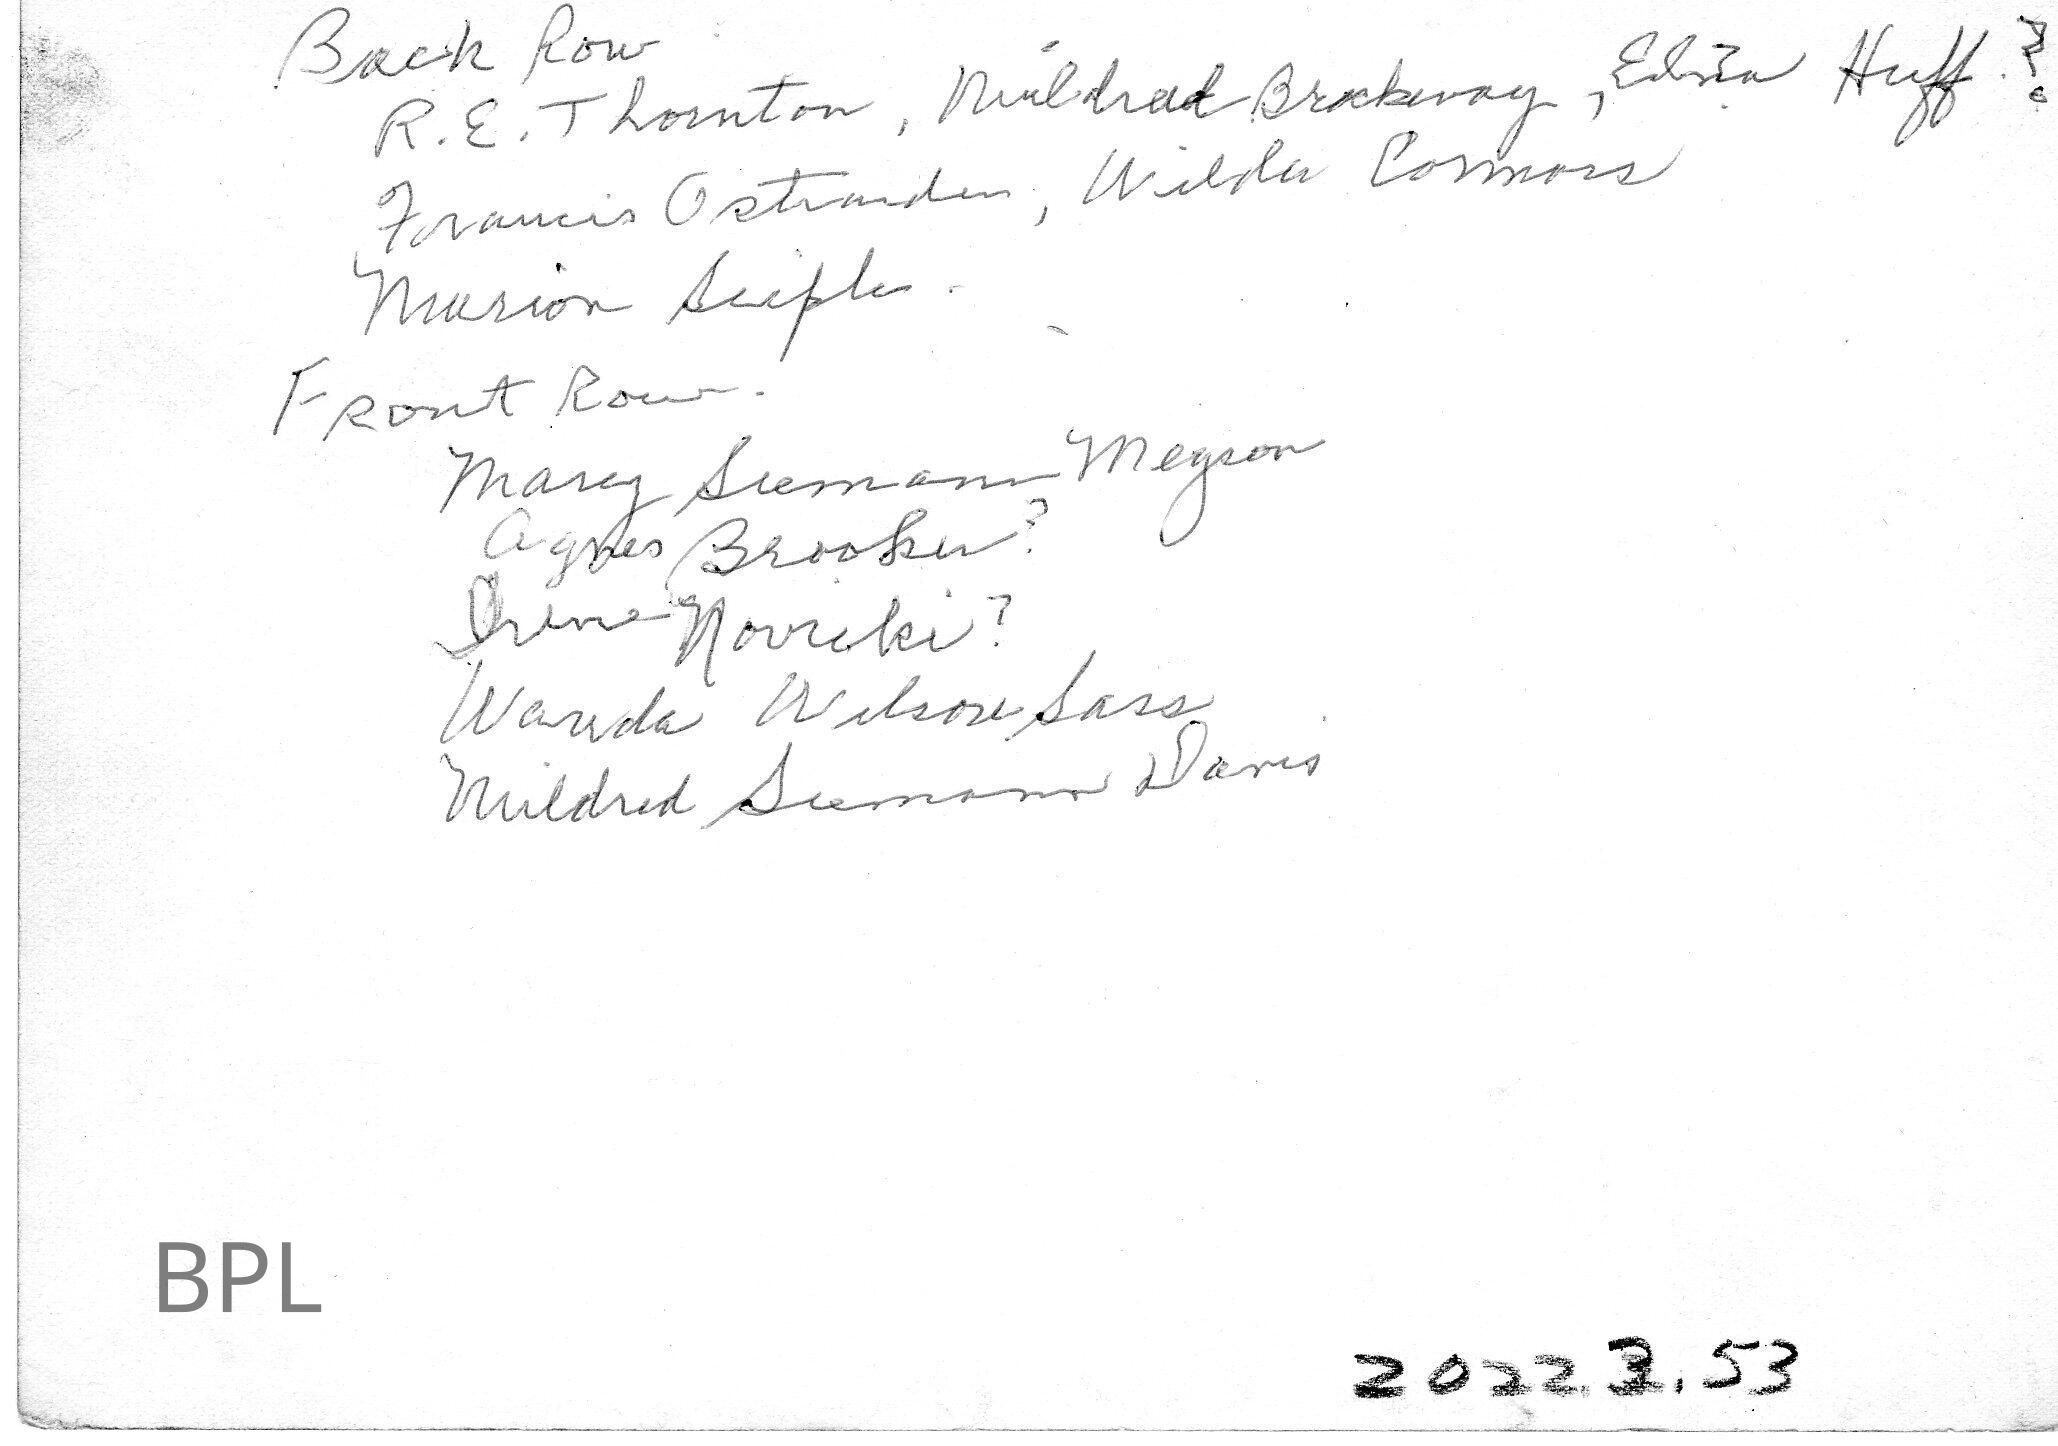 Back Row
R.E. Thornton, Mildred Brockway, Edna Huff.?
Francis Ostrander, Wilda Connors
Marion Seiple.
Front Row.
Mary Siemann Megson
Agnes Brooker?
Irene Novicki?
Wanda Wilson Sass
Mildred Siemann Davis
BPL
2022.3.53